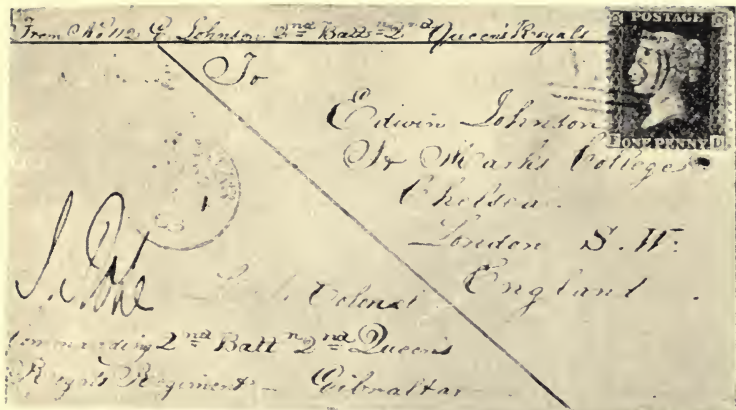 From No 112 E. Johnson 2nd Battn 2nd Queen's Royals
POSTAGE
ONE PENNY
F D
To
Edwin Johnson
St Mark's College
Chelsea
London S.W.
England
Colonel
Commanding 2nd Battn 2nd Queen's
Royal Regiment Gibraltar